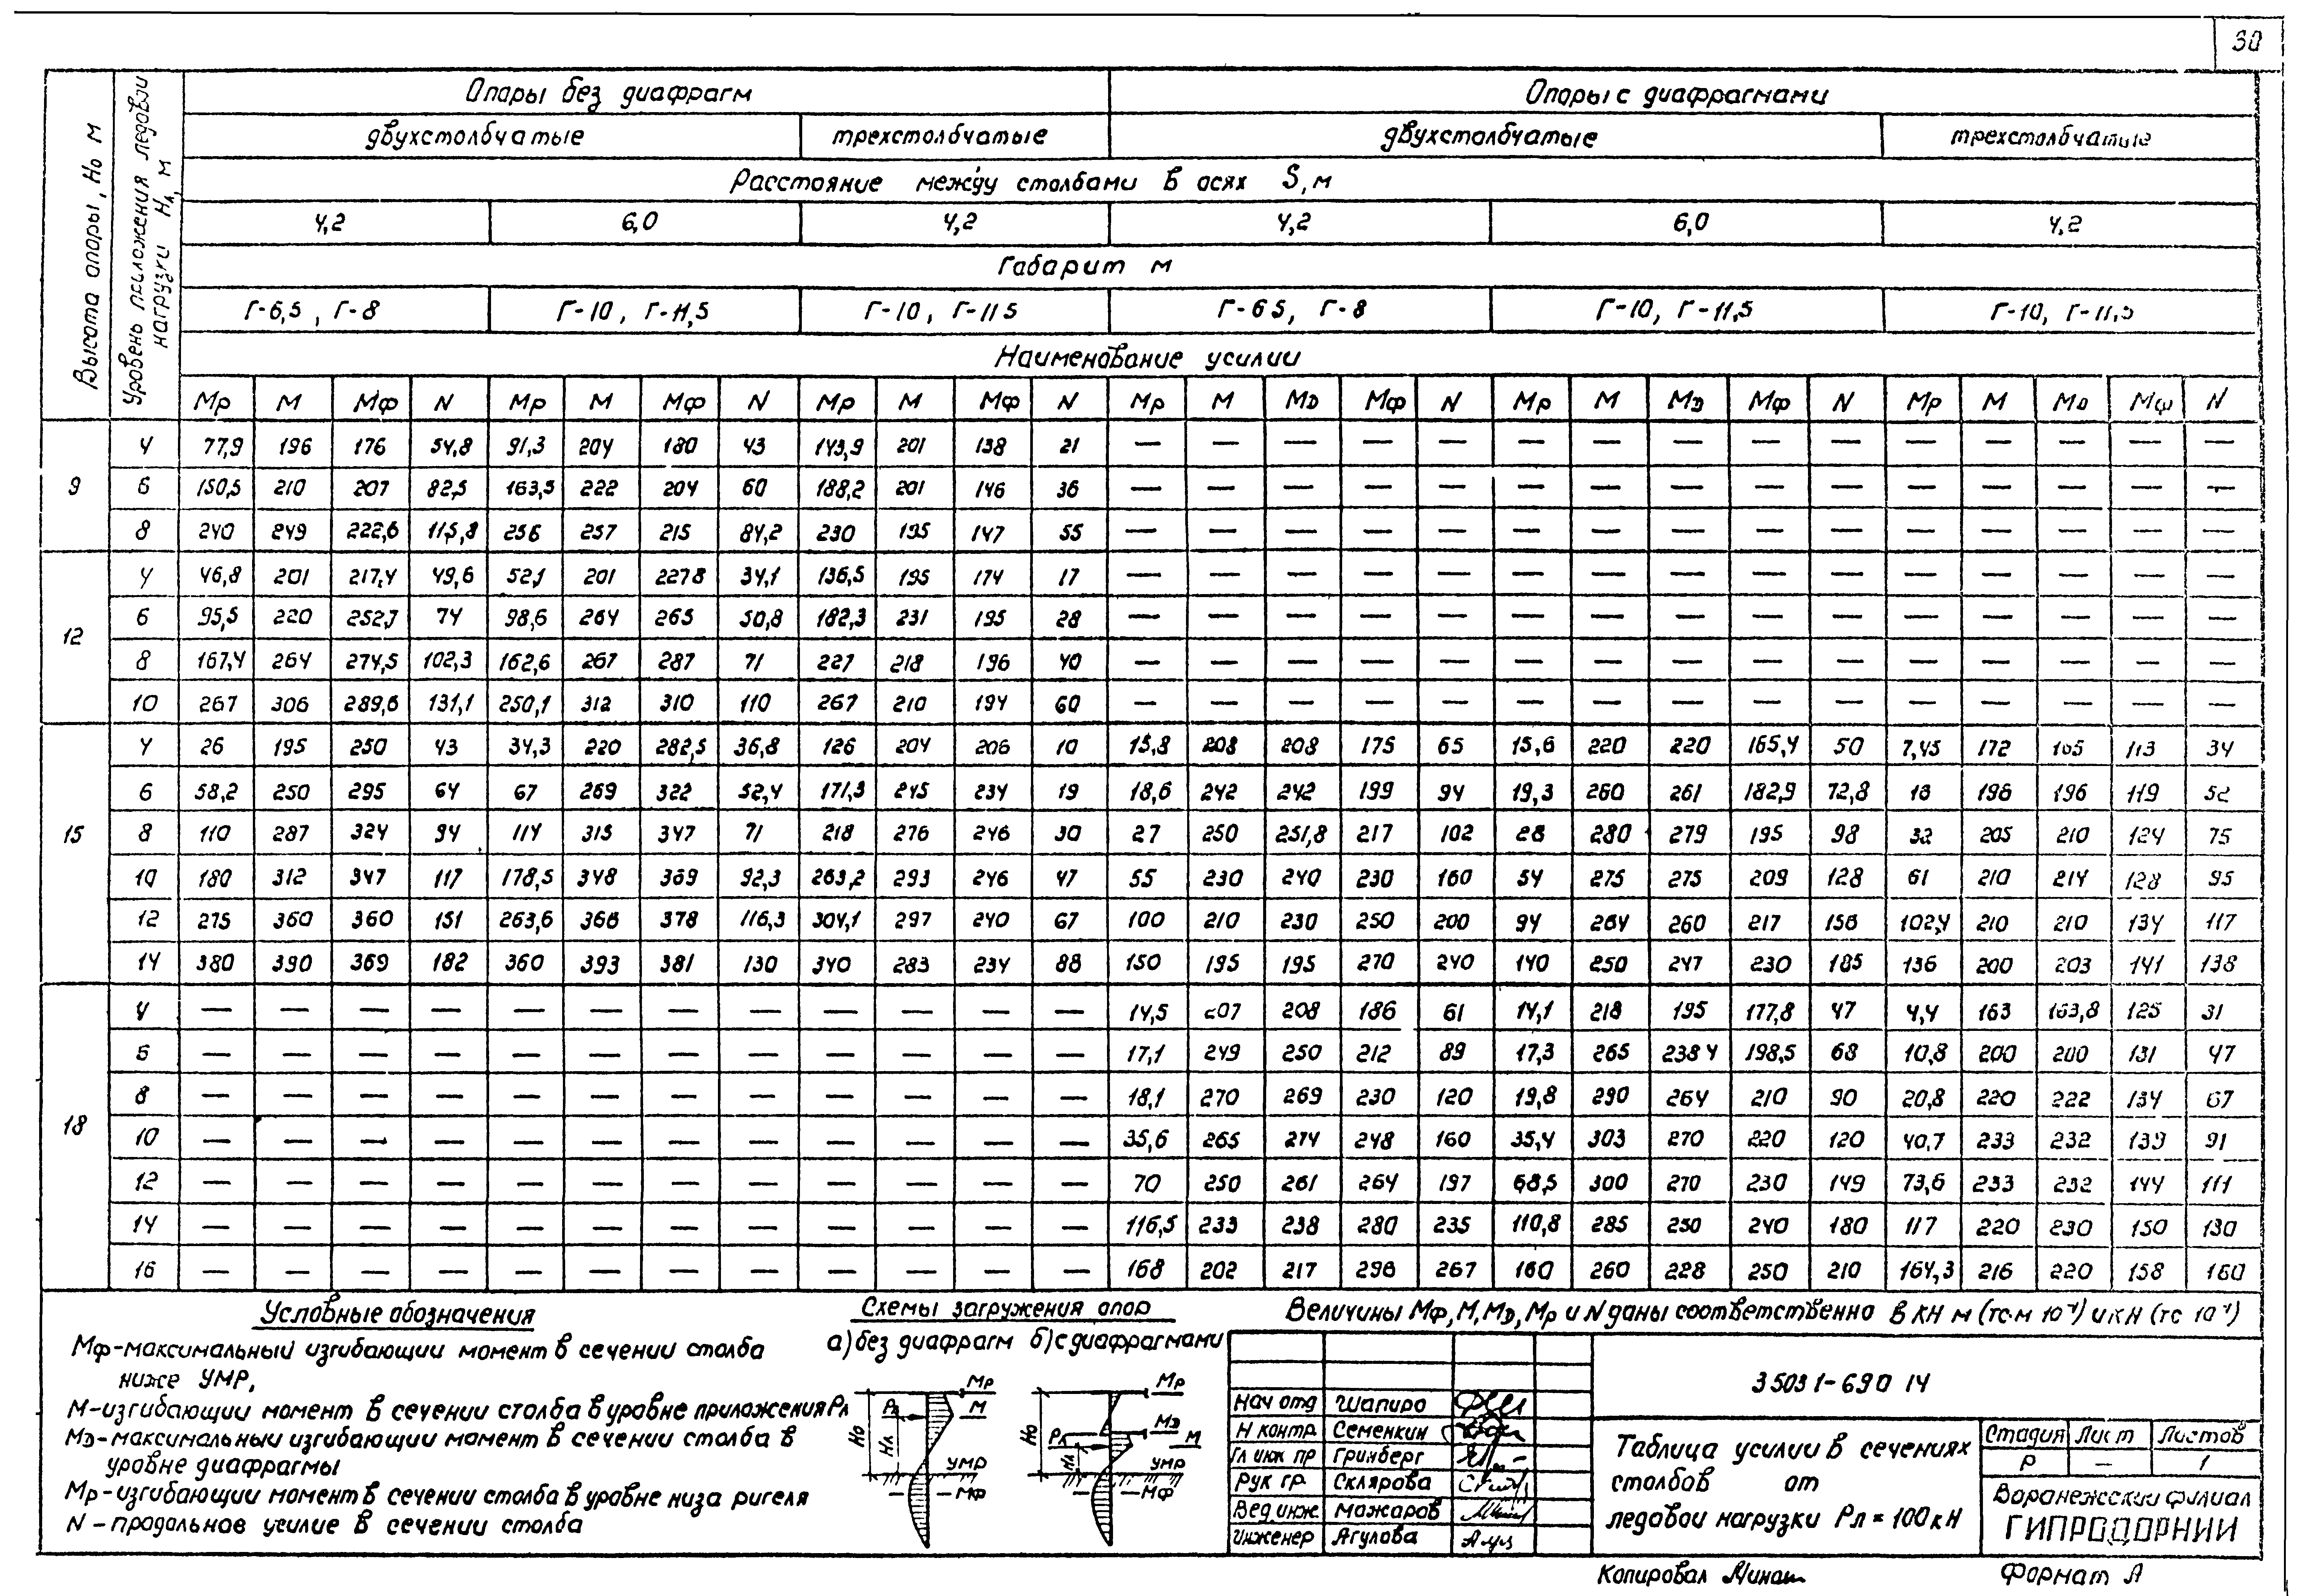 30
Высота опоры, Н₀ м
Уровень положения ледовой нагрузки Нл, м
Опоры без диафрагм Опоры с диафрагмами
двухстолбчатые трехстолбчатые двухстолбчатые трехстолбчатые
Расстояние между столбами в осях S, м
4,2 6,0 4,2 4,2 6,0 4,2
Габарит м
Г-6,5, Г-8 Г-10, Г-11,5 Г-10, Г-11 5 Г-6 5, Г-8 Г-10, Г-11,5 Г-10, Г-11,5
Наименование усилии
Мр М Мф N Мр М Мф N Мр М Мф N Мр М МD Мф N Мр М МD Мф N Мр М МD Мф N
9
4 77,9 196 176 54,8 91,3 204 180 43 143,9 201 138 21 — — — — — — — — — — — — — — —
6 150,5 210 207 82,5 163,5 222 204 60 188,2 201 146 36 — — — — — — — — — — — — — — —
8 240 249 222,6 115,8 256 257 215 84,2 230 195 147 55 — — — — — — — — — — — — — — —
12
4 46,8 201 217,4 49,6 52,1 201 227 8 34,1 136,5 195 174 17 — — — — — — — — — — — — — — —
6 95,5 220 252,7 74 98,6 264 265 50,8 182,3 231 195 28 — — — — — — — — — — — — — — —
8 167,4 264 274,5 102,3 162,6 267 287 71 227 218 196 40 — — — — — — — — — — — — — — —
10 267 306 289,6 131,1 250,1 312 310 110 267 210 194 60 — — — — — — — — — — — — — — —
15
4 26 195 250 43 34,3 220 282,5 36,8 126 204 206 10 15,8 208 208 175 65 15,6 220 220 165,4 50 7,45 172 165 113 34
6 58,2 250 295 64 67 269 322 52,4 171,3 245 234 19 18,6 242 242 199 94 19,3 260 261 182,9 72,8 16 196 196 119 52
8 110 287 324 94 114 315 347 71 218 276 246 30 27 250 251,8 217 102 28 280 279 195 98 32 205 210 124 75
10 180 312 347 117 178,5 348 369 92,3 263,2 293 246 47 55 230 240 230 160 54 275 275 209 128 61 210 214 128 95
12 275 360 360 151 263,6 366 378 116,3 304,1 297 240 67 100 210 230 250 200 94 264 260 217 156 102,4 210 210 134 117
14 380 390 369 182 360 393 381 130 340 283 234 88 150 195 195 270 240 140 250 247 230 185 136 200 203 141 138
18
4 — — — — — — — — — — — — 14,5 207 208 186 61 14,1 218 195 177,8 47 4,4 163 163,8 125 31
6 — — — — — — — — — — — — 17,1 249 250 212 89 17,3 265 238 4 198,5 68 10,8 200 200 131 47
8 — — — — — — — — — — — — 18,1 270 269 230 120 19,8 290 264 210 90 20,8 220 222 134 67
10 — — — — — — — — — — — — 35,6 265 274 248 160 35,4 303 270 220 120 40,7 233 232 139 91
12 — — — — — — — — — — — — 70 250 261 264 197 68,5 300 270 230 149 73,6 233 232 144 111
14 — — — — — — — — — — — — 116,5 233 238 280 235 110,8 285 250 240 180 117 220 230 150 130
16 — — — — — — — — — — — — 168 202 217 296 267 160 260 228 250 210 164,3 216 220 158 160
Условные обозначения
Мф-максимальный изгибающий момент в сечении столба
ниже УМР,
М-изгибающий момент в сечении столба в уровне приложения Рл
МD-максимальныи изгибающии момент в сечении столба в
уровне диафрагмы
Мр-изгибающий момент в сечении столба в уровне низа ригеля
N - продольное усилие в сечении столба
Схемы загружения опор
а) без диафрагм б) с диафрагмами
Мр
М
Рл
Н₀
Нл
УМР
Мф
Мр
МD
М
Рл
Н₀
Нл
УМР
Мф
Величины Мф, М, МD, Мр и N даны соответственно в кН м (тс·м 10⁻¹) и кН (тс 10⁻¹)
Нач отд Шапиро
Н контр Семенкин
Гл инж пр Гринберг
Рук гр. Склярова
Вед инж. Мажаров
Инженер Ягулова
3 503 1-69 0 14
Таблица усилии в сечениях
столбов от
ледовои нагрузки Рл = 100 кН
Стадия Лист Листов
Р — 1
Воронежский филиал
ГИПРОДОРНИИ
Копировал
Формат А